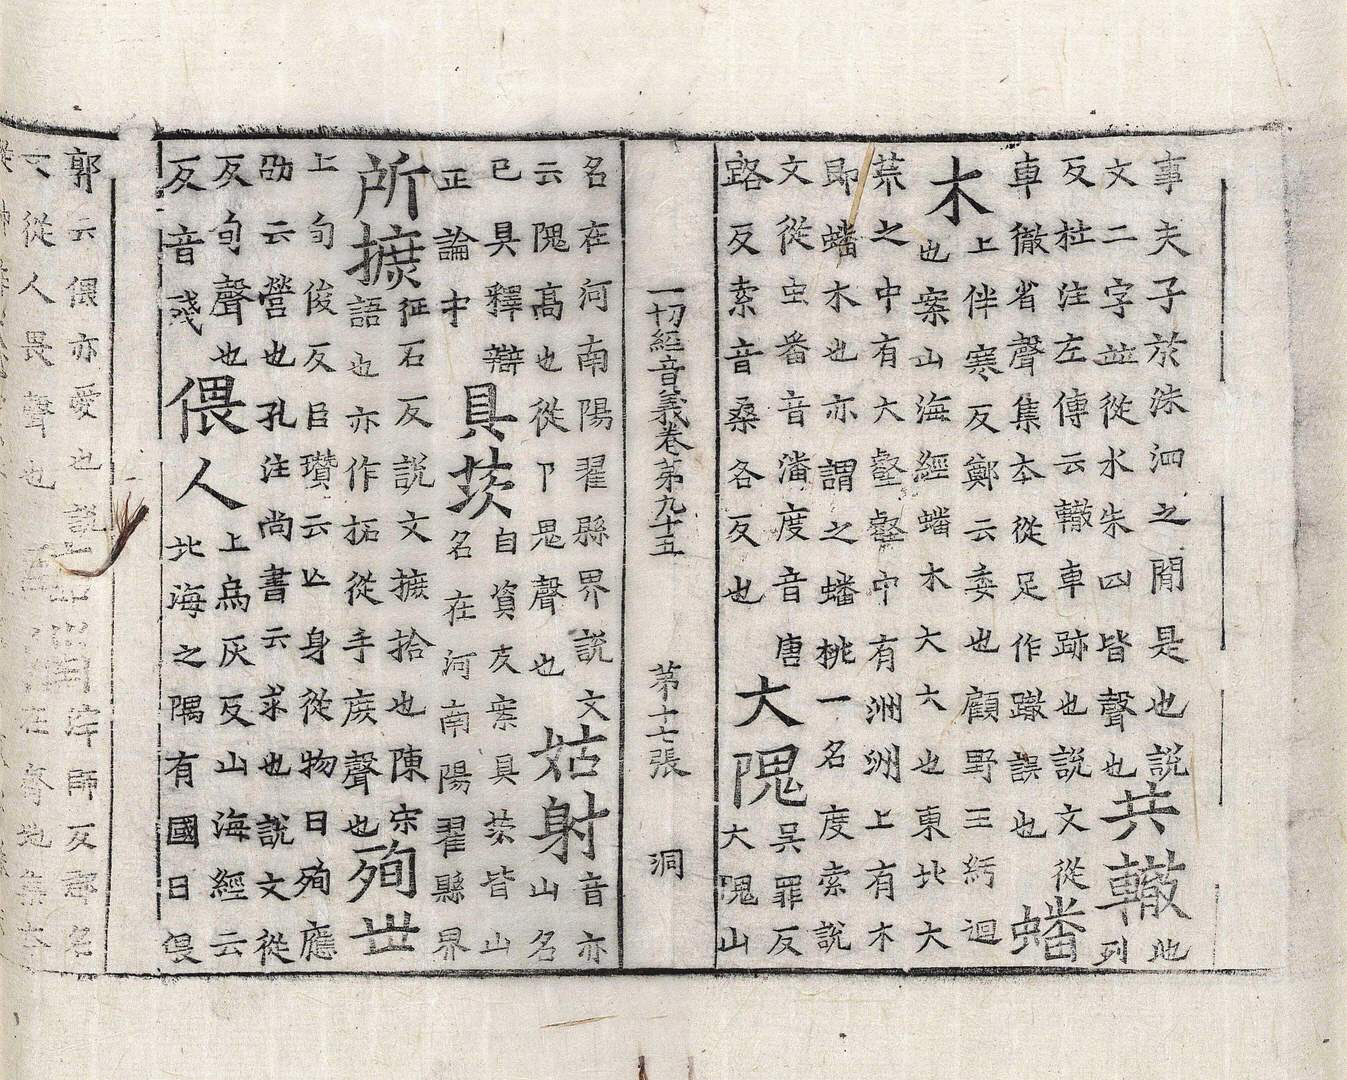 事夫子於洙泗之間是也說
文二字並從水朱四皆聲也
共轍
地
列
反杜注左傳云轍車跡也說文從
車徹省聲集本從足作蹳誤也
蟠
木
上伴寒反鄭云委也顧野王紆迴
也案山海經蟠木大大也東北大
荒之中有大壑壑中有洲洲上有木
即蟠木也亦謂之蟠桃一名度索說
文從虫番音潘度音唐
路反索音桑各反也
大隗
吳罪反
大隗山
一切經音義卷第九十五 第十七張 洞
名在河南陽翟縣界說文
云隗高也從卩鬼聲也
姑射
音亦
山名
已具釋辯
正論中
具茨
自資反案具茨皆山
名在河南陽翟縣界
所摭
征石反說文摭拾也陳宋
語也亦作拓從手庶聲也
殉世
上旬俊反臣瓚云亡身從物曰殉應
劭云營也孔注尚書云求也說文從
歹旬聲也
歹音殘
偎人
上烏灰反山海經云
北海之隅有國曰偎
郭云偎亦愛也說
從人畏聲也
淬師反郡名
在齊地集本